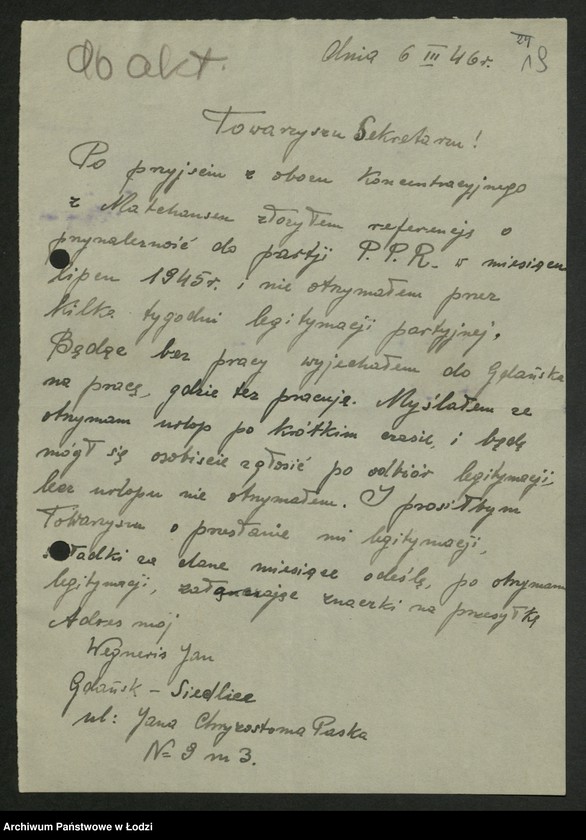 ab akt.
dnia 6 III 46 r.
19
Towarzyszu Sekretarzu!
Po przyjsciu z obozu Koncentracyjnego
z Matchausen złożyłem referencję o
przynalezność do partji P.P.R. w miesiącu
lipcu 1945 r. i nie otrzymałem przez
kilka tygodni legitymacji partyjnej.
Bądąc bez pracy wyjechałem do Gdańska
na pracę, gdzie tez pracuję. Myślałem ze
otrzymam urlop po krótkim czasie, i będę
mógł się osobiscie zgłosić po odbiór legitymacji,
lecz urlopu nie otrzymałem. I prosiłbym
Towarzysza o przesłanie mi legitymacji,
składki za dane miesiące odeślę, po otrzymaniu
legitymacji, załączając znaczki na przesyłkę
Adres mój
Wegneris Jan
Gdańsk - Siedlice
ul: Jana Chryzostoma Paska
N= 9 m 3.
Archiwum Państwowe w Łodzi